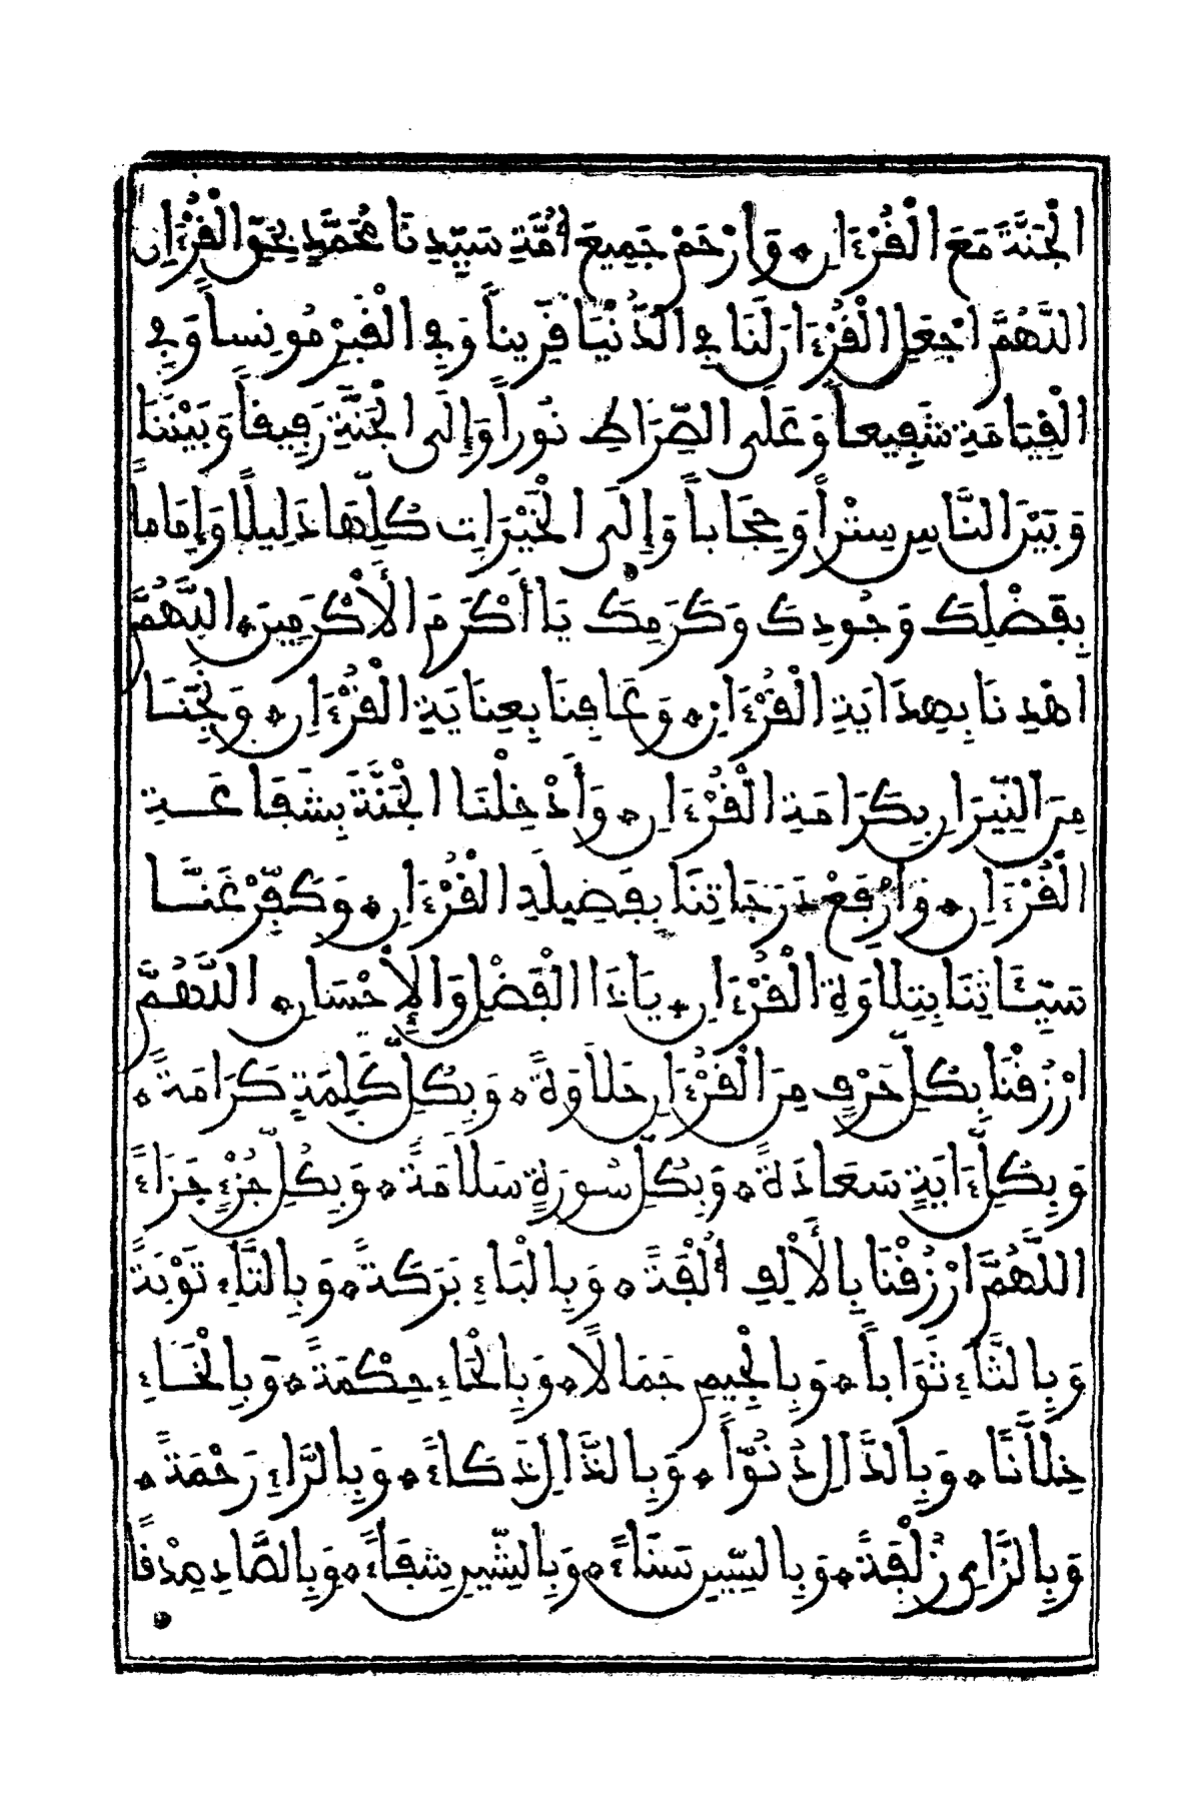 الْجَنَّةَ مَعَ الْقُرْءَانِ ۞ وَارْحَمْ جَمِيعَ أُمَّةِ سَيِّدِنَا مُحَمَّدٍ بِحَقِّ الْقُرْءَانِ
اللَّهُمَّ اجْعَلِ الْقُرْءَانَ لَنَا فِي الدُّنْيَا قَرِيناً وَفِي الْقَبْرِ مُونِساً وَفِي
الْقِيَامَةِ شَفِيعاً وَعَلَى الصِّرَاطِ نُوراً وَإِلَى الْجَنَّةِ رَفِيقاً وَبَيْنَنَا
وَبَيْنَ النَّاسِ سِتْراً وَحِجَاباً وَإِلَى الْخَيْرَاتِ كُلِّهَا دَلِيلًا وَإِمَاماً
بِفَضْلِكَ وَجُودِكَ وَكَرَمِكَ يَا أَكْرَمَ الْأَكْرَمِينَ ۞ اللَّهُمَّ
اهْدِنَا بِهِدَايَةِ الْقُرْءَانِ ۞ وَعَافِنَا بِعِنَايَةِ الْقُرْءَانِ ۞ وَنَجِّنَا
مِنَ النِّيرَانِ بِكَرَامَةِ الْقُرْءَانِ ۞ وَأَدْخِلْنَا الْجَنَّةَ بِشَفَاعَةِ
الْقُرْءَانِ ۞ وَارْفَعْ دَرَجَاتِنَا بِفَضِيلَةِ الْقُرْءَانِ ۞ وَكَفِّرْ عَنَّا
سَيِّئَاتِنَا بِتِلَاوَةِ الْقُرْءَانِ ۞ يَا ذَا الْفَضْلِ وَالْإِحْسَانِ ۞ اللَّهُمَّ
ارْزُقْنَا بِكُلِّ حَرْفٍ مِنَ الْقُرْءَانِ حَلَاوَةً ۞ وَبِكُلِّ كَلِمَةٍ كَرَامَةً ۞
وَبِكُلِّ ءَايَةٍ سَعَادَةً ۞ وَبِكُلِّ سُورَةٍ سَلَامَةً ۞ وَبِكُلِّ جُزْءٍ جَزَاءً
اللَّهُمَّ ارْزُقْنَا بِالْأَلِفِ أُلْفَةً ۞ وَبِالْبَاءِ بَرَكَةً ۞ وَبِالتَّاءِ تَوْبَةً
وَبِالثَّاءِ ثَوَاباً ۞ وَبِالْجِيمِ جَمَالًا ۞ وَبِالْحَاءِ حِكْمَةً ۞ وَبِالْخَاءِ
خِلَّاناً ۞ وَبِالدَّالِ دُنُوّاً ۞ وَبِالذَّالِ ذَكَاءً ۞ وَبِالرَّاءِ رَحْمَةً ۞
وَبِالزَّايِ زُلْفَةً ۞ وَبِالسِّينِ سَنَاءً ۞ وَبِالشِّينِ شِفَاءً ۞ وَبِالصَّادِ صِدْقاً
۞